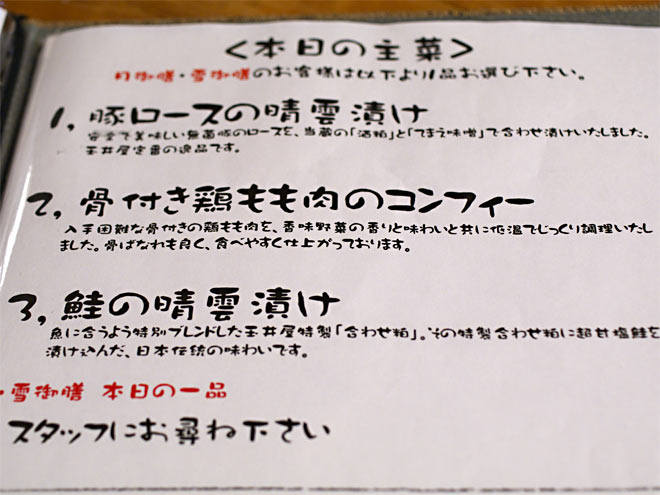 <本日の主菜>
月御膳・雪御膳のお客様は以下より1品お選び下さい。
1, 豚ロースの晴雲漬け
安全で美味しい無菌豚のロースを、当蔵の「酒粕」と「てまえ味噌」で合わせ漬けいたしました。
玉井屋定番の逸品です。
2, 骨付き鶏もも肉のコンフィー
入手困難な骨付きの鶏もも肉を、香味野菜の香りと味わいと共に低温でじっくり調理いたし
ました。骨ばなれも良く、食べやすく仕上がっております。
3, 鮭の晴雲漬け
魚に合うよう特別ブレンドした玉井屋特製「合わせ粕」。その特製合わせ粕に超甘塩鮭を
漬け込んだ、日本伝統の味わいです。
・雪御膳 本日の一品
スタッフにお尋ね下さい